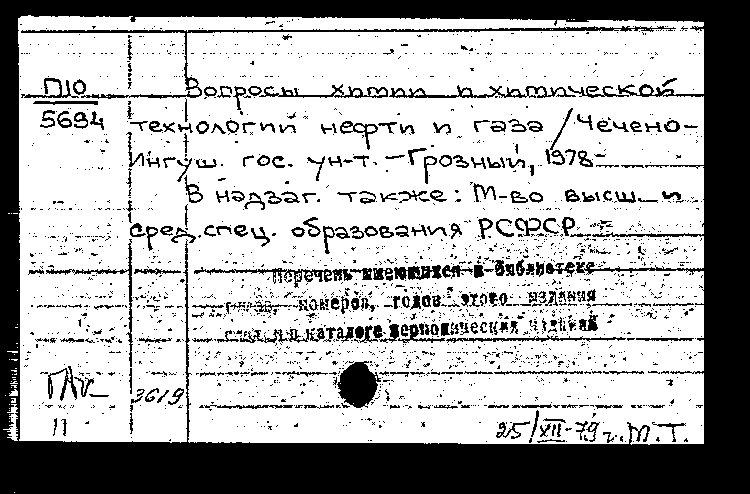 П10
5694
Вопросы химии и химической
технологии нефти и газа / Чечено-
Ингуш. гос. ун-т. - Грозный, 1978-
В надзаг. также: М-во высш. и
сред. спец. образования РСФСР.
Перечень имеющихся в библиотеке
номеров, годов этого издания
каталоге периодических изданий
3619
11
25/XII-79 г. М.Т.